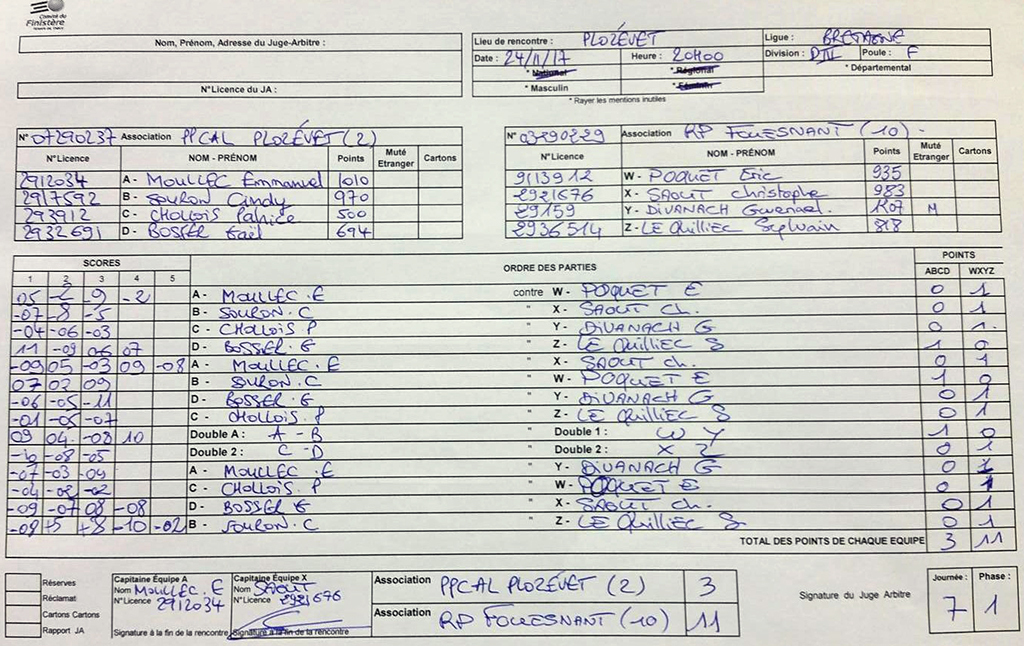 Comité du
Finistère
Nom, Prénom, Adresse du Juge-Arbitre :
N°Licence du JA :
Lieu de rencontre : PLOZÉVET
Ligue : BRETAGNE
Date : 24/11/17 Heure : 20H00
Division : DIV Poule : F
* National * Régional * Départemental
* Masculin * Féminin
* Rayer les mentions inutiles
N° 07290237 Association PPCAL PLOZÉVET (2)
N°Licence NOM - PRÉNOM Points Muté Etranger Cartons
2912034 A - MOULLEC Emmanuel 1010
2917592 B - SOURON Cindy 970
293912 C - CHOLLOIS Patrice 500
2932691 D - BOSSER Gaël 694
N° 03290229 Association RP FOUESNANT (10) -
N°Licence NOM - PRÉNOM Points Muté Etranger Cartons
9113912 W - POQUET Eric 935
2921676 X - SAOUT Christophe 983
29159 Y - DIVANACH Gwenael. 1307 M
2936514 Z - LE QUILLIEC Sylvain 818
SCORES ORDRE DES PARTIES POINTS
1 2 3 4 5 ABCD WXYZ
05 -2 -9 -2 A - MOULLEC. E contre W - POQUET E 0 1
-07 -8 -5 B - SOURON. C " X - SAOUT Ch. 0 1
-04 -06 -03 C - CHOLLOIS P " Y - DIVANACH G 0 1
11 -09 06 07 D - BOSSER. G " Z - LE QUILLIEC S 1 0
-09 05 -03 09 -08 A - MOULLEC. E " X - SAOUT Ch. 0 1
07 02 09 B - SOURON. C " W - POQUET E 1 0
-06 -05 -11 D - BOSSER. G " Y - DIVANACH G 0 1
-01 -05 -07 C - CHOLLOIS. P " Z - LE QUILLIEC S 0 1
09 04 -08 10 Double A : A - B " Double 1 : W Y 1 0
-10 -08 -05 Double 2 : C - D " Double 2 : X Z 0 1
-07 -03 -09 A - MOULLEC. E " Y - DIVANACH G 0 1
-04 -02 -02 C - CHOLLOIS. P " W - POQUET E 0 1
-09 -07 08 -08 D - BOSSER G " X - SAOUT Ch. 0 1
-08 +5 +8 -10 -02 B - SOURON. C " Z - LE QUILLIEC S. 0 1
TOTAL DES POINTS DE CHAQUE EQUIPE 3 11
Réserves
Réclamat
Cartons Cartons
Rapport JA
Capitaine Équipe A
Nom MOULLEC. E
N°Licence 2912034
Signature à la fin de la rencontre
Capitaine Équipe X
Nom SAOUT
N°Licence 2921676
Signature à la fin de la rencontre
Association PPCAL PLOZÉVET (2) 3
Association RP FOUESNANT (10) 11
Signature du Juge Arbitre
Journée : 7 Phase : 1